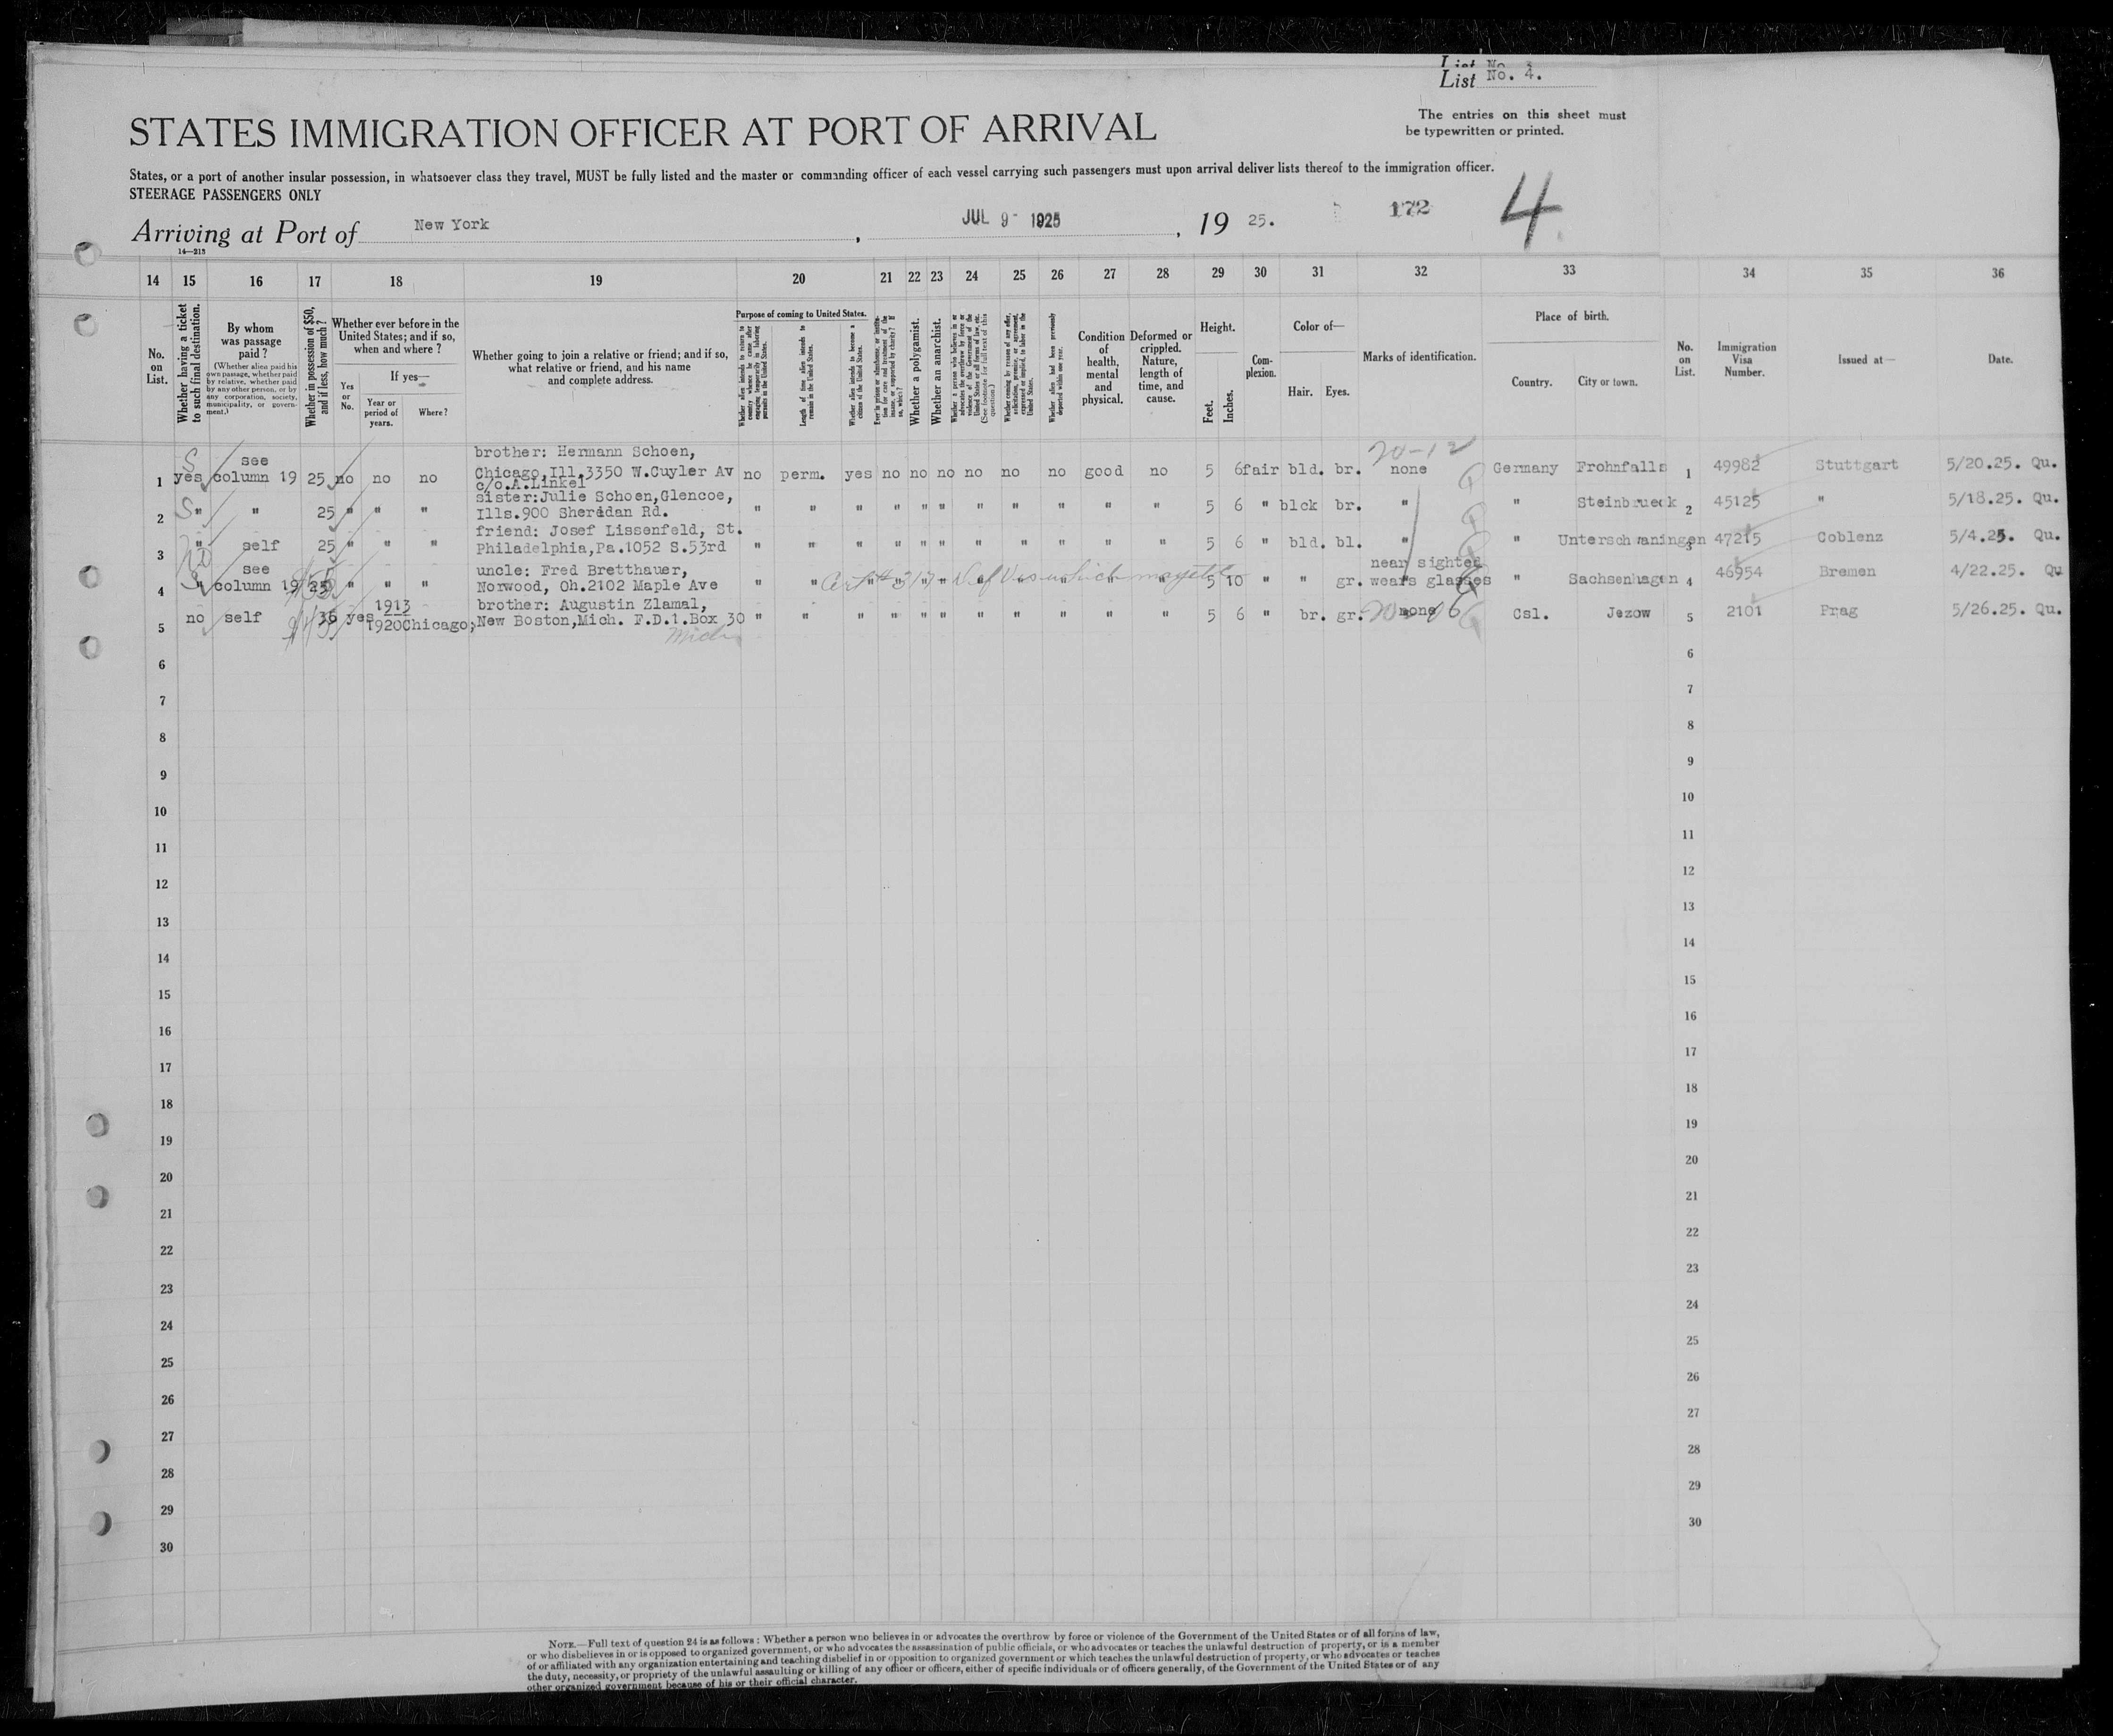 List No. 3
List No. 4.
The entries on this sheet must
be typewritten or printed.
STATES IMMIGRATION OFFICER AT PORT OF ARRIVAL
States, or a port of another insular possession, in whatsoever class they travel, MUST be fully listed and the master or commanding officer of each vessel carrying such passengers must upon arrival deliver lists thereof to the immigration officer.
STEERAGE PASSENGERS ONLY
Arriving at Port of New York, JUL 9- 1925, 19 25. 172 4
14—215
14 15 16 17 18 19 20 21 22 23 24 25 26 27 28 29 30 31 32 33 34 35 36
No. on List.
Whether having a ticket to such final destination.
By whom was passage paid?
(Whether alien paid his own passage, whether paid by relative, whether paid by any other person, or by any corporation, society, municipality, or government.)
Whether in possession of $50, and if less, how much?
Whether ever before in the United States; and if so, when and where?
Yes or No.
If yes—
Year or period of years.
Where?
Whether going to join a relative or friend; and if so, what relative or friend, and his name and complete address.
Purpose of coming to United States.
Whether alien intends to return to country whence he came after engaging temporarily in laboring pursuits in the United States.
Length of time alien intends to remain in the United States.
Whether alien intends to become a citizen of the United States.
Ever in prison or almshouse, or institution for care and treatment of the insane, or supported by charity? If so, which?
Whether a polygamist.
Whether an anarchist.
Whether a person who believes in or advocates the overthrow by force or violence of the Government of the United States or all forms of law, etc. (See footnote for full text of this question.)
Whether coming by reason of any offer, solicitation, promise, or agreement, expressed or implied, to labor in the United States.
Whether alien had been previously deported within one year.
Condition of health, mental and physical.
Deformed or crippled. Nature, length of time, and cause.
Height.
Feet. Inches.
Complexion.
Color of—
Hair. Eyes.
Marks of identification.
Place of birth.
Country. City or town.
No. on List.
Immigration Visa Number.
Issued at—
Date.
brother: Hermann Schoen,
S see 20-12
1 yes column 19 25 no no no Chicago,Ill.3350 W.Cuyler Av no perm. yes no no no no no no good no 5 6 fair bld. br. none Germany Frohnfalls 1 49982 Stuttgart 5/20.25. Qu.
c/o.A.Linkel
sister:Julie Schoen,Glencoe,
2 S " " 25 " " " Ills.900 Sheridan Rd. " " " " " " " " " " " 5 6 " blck br. " " Steinbrueck 2 45125 " 5/18.25. Qu.
friend: Josef Lissenfeld, St.
3 " self 25 " " " Philadelphia,Pa.1052 S.53rd " " " " " " " " " " " 5 6 " bld. bl. " " Unterschwaningen 3 47215 Coblenz 5/4.25. Qu.
see uncle: Fred Bretthauer, near sighted
4 " column 19 25 " " " Norwood, Oh.2102 Maple Ave " " " " " " " " " " 5 10 " " gr. wears glasses " Sachsenhagen 4 46954 Bremen 4/22.25. Qu
1913 brother: Augustin Zlamal,
5 no self 36 yes 1920 Chicago, New Boston,Mich. F.D.1.Box 30 " " " " " " " " " " " 5 6 " br. gr. none Csl. Jezow 5 2101 Prag 5/26.25. Qu.
Mich
6 6
7 7
8 8
9 9
10 10
11 11
12 12
13 13
14 14
15 15
16 16
17 17
18 18
19 19
20 20
21 21
22 22
23 23
24 24
25 25
26 26
27 27
28 28
29 29
30 30
NOTE.—Full text of question 24 is as follows: Whether a person who believes in or advocates the overthrow by force or violence of the Government of the United States or of all forms of law,
or who disbelieves in or is opposed to organized government, or who advocates the assassination of public officials, or who advocates or teaches the unlawful destruction of property, or is a member
of or affiliated with any organization entertaining and teaching disbelief in or opposition to organized government or which teaches the unlawful destruction of property, or who advocates or teaches
the duty, necessity, or propriety of the unlawful assaulting or killing of any officer or officers, either of specific individuals or of officers generally, of the Government of the United States or of any
other organized government because of his or their official character.